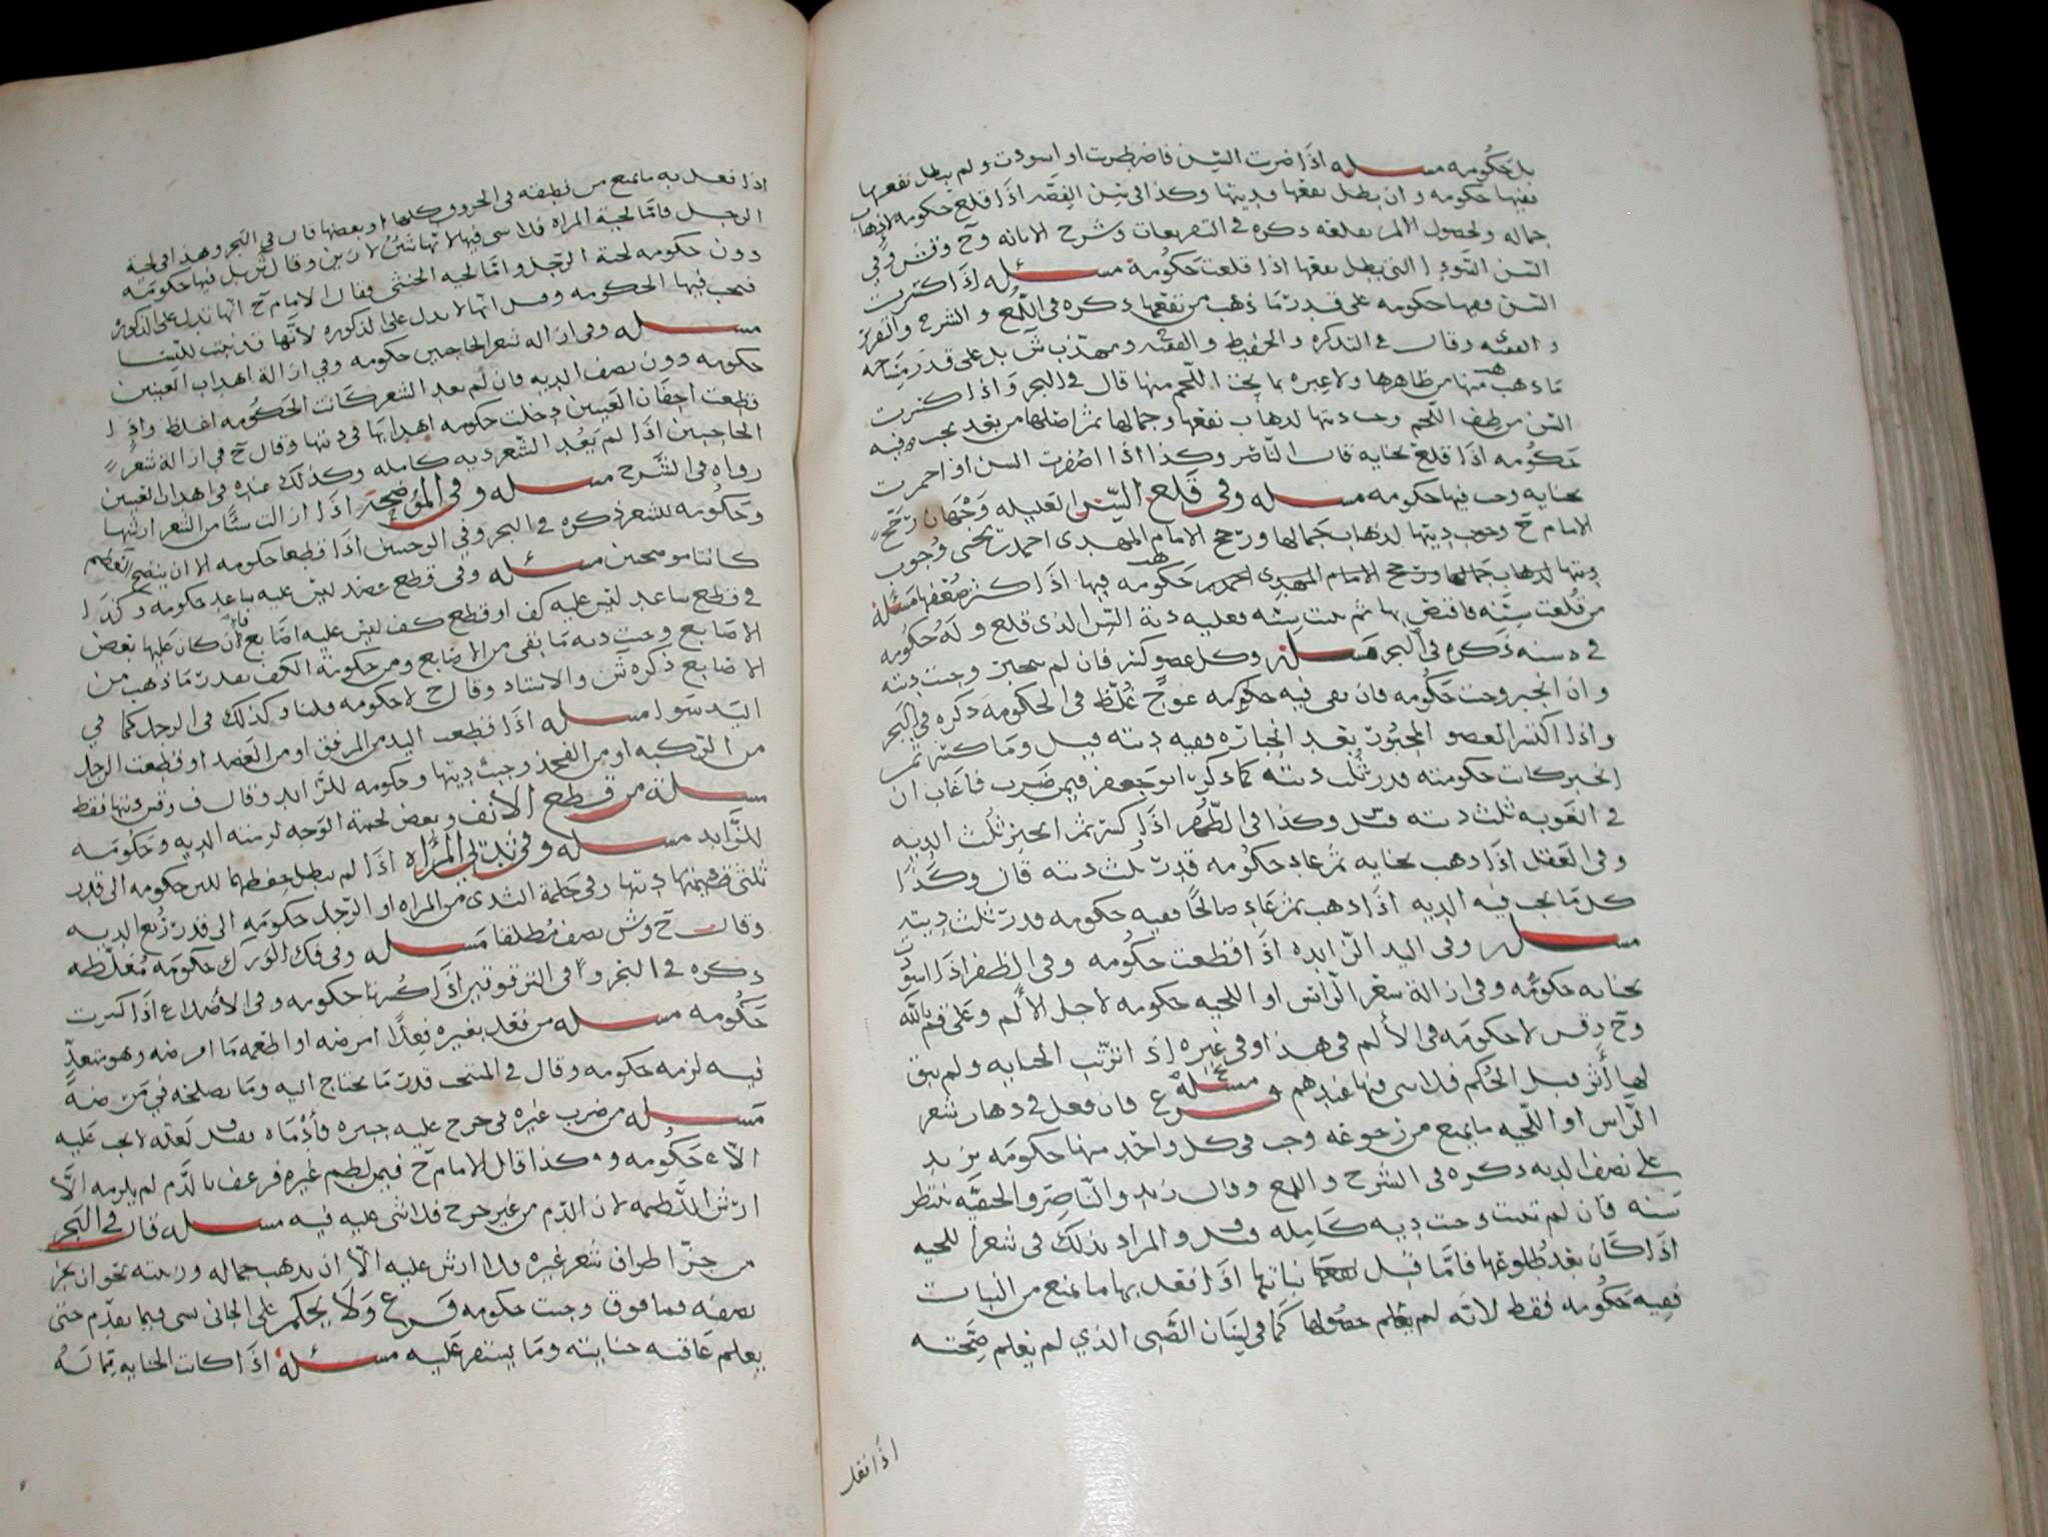 بل حكومه مسئله اذا ضربت السن فاضطربت او اسودت ولم يبطل نفعها
ففيها حكومه وان بطل نفعها فديتها وكذا في سن الفضه اذا قلع حكومه لاذهاب
جماله ولحصول الالم بقلعه ذكره في التفريعات وشرح الابانه
السن السودا التي بطل نفعها اذا قلعت حكومة مسئله اذا اكسرت
السن ففيها حكومه على قدر ما ذهب من نفعها ذكره في اللمع والشرح والتقرير
وقال في التذكره والحفيظ على قدر مساحه
ما ذهب منها من ظاهرها ولا عبره بما تحت اللحم منها قال في البحر واذا كسرت
السن من طرف اللحم وجبت ديتها لذهاب نفعها وجمالها ثم اصلها من بعد يجب فيه
حكومه اذا قلع بجنايه قال الناصر وكذا اذا اصفرت السن او احمرت
بجنايه وجب فيها حكومه مسئله وفي قلع السن العليله وجهان رجح
الامام ح وجوب ديتها لذهاب جمالها ورجح الامام المهدي احمد بن يحيى وجوب
حكومه فيها اذا كثر ضعفها مسئلة
من قلعت سنه فاقتص بها ثم نبتت سنه فعليه دية السن الذي قلع وله حكومه
في سنه ذكره في البحر مسئله وكل عضو كسر فان لم ينجبر وجبت ديته
وان انجبر وجبت حكومه فان بقي فيه عوج غلظ في الحكومه ذكره في البحر
واذا انكسر العضو المجبور بعد انجباره ففيه ديته قيل وما كسر ثم
انجبر كانت حكومته قدر ثلث ديته كما ذكره ابو جعفر فيمن ضرب فاغاب ان
في الغيوبه ثلث ديته قيل وكذا في الظهر اذا كسر ثم انجبر ثلث الديه
وفي العقل اذا ذهب بجنايه ثم عاد حكومه قدر ثلث ديته قال وكذا
كل ما يجب فيه الديه اذا ذهب ثم عاد صالحا ففيه حكومه قدر ثلث ديته
مسئله وفي اليد الزايده اذا قطعت حكومه وفي الظفر اذا اسود
بجنايه حكومه وفي ازالة شعر الراس او اللحيه حكومه لاجل الالم وعلى قم بالله
لا حكومه في الالم في هذا وفي غيره اذا لم ترتب الجنايه ولم يبق
لها اثر قبل الحكم فلا شي فيها عندهم مسئله فرع فان فعل في ذهاب شعر
الراس او اللحيه ما يمنع من رجوعه وجب في كل واحد منها حكومه يزيد
على نصف الديه ذكره في الشرح واللمع وقال زيد والناصر والحنفيه ينتظر
سنه فان لم تنبت وجبت ديه كامله قيل والمراد بذلك في شعر اللحيه
اذا كان بعد طلوعها فاما قبل نباتها اذا فعل بها ما يمنع من النبات
ففيه حكومه فقط لانه لم يعلم حصولها كما في لسان الصبي الذي لم يعلم صحته
اذا فعل
اذا فعل به ما يمنع من نطقه في الحروف كلها او بعضها قال في البحر وهذا في لحية
الرجل فاما لحية المراه فلا شي فيها لانها شين لا زين وقال بل فيها حكومه
دون حكومه لحية الرجل واما لحيه الخنثى فقال الامام ح انها تدل على الذكوره
فيجب فيها الحكومه وقيل انها لا تدل على الذكوره لانها قد تنبت للنسا
مسئله وفي ازاله شعر الحاجبين حكومه وفي ازالة اهداب العينين
حكومه دون نصف الديه فان لم يعد الشعر كانت الحكومه اغلظ واذا
قطعت اجفان العينين دخلت حكومه اهدابها في ديتها وقال ح في ازالة شعر
الحاجبين اذا لم يعد الشعر ديه كامله وكذلك عنده في اهداب العينين
رواه في الشرح مسئله وفي الموضحه اذا ازالت شيا من الشعر ارشها
وحكومه للشعر ذكره في البحر وفي الوجنتين اذا قطعا حكومه الا ان ينضح العظم
كانتا موضحتين مسئله وفي قطع عضد ليس عليه ساعد حكومه وكذا
في قطع ساعد ليس عليه كف او قطع كف ليس عليه اصابع فان كان عليها بعض
الاصابع وجبت ديه ما بقي من الاصابع ومن حكومة الكف بقدر ما ذهب من
الاصابع ذكره والاستاد وقال ح لا حكومه قلنا وكذلك في الرجل كما في
اليد سوا مسئله اذا قطعت اليد من المرفق او من العضد او قطعت الرجل
من الركبه او من الفخذ وجبت ديتها وحكومه للزايد وقال ف وقيس ديتها فقط
مسئلة من قطع الانف وبعض لحمة الوجه لزمته الديه وحكومه
للزايد مسئله وفي ثديي المراه اذا لم يبطل حفظهما للبن حكومه الى قدر
ثلثي ديتها وفي حلمة الثدي من المراه او الرجل حكومه الى قدر ربع الديه
وقال ح وش نصف مطلقا مسئله وفي فك الورك حكومه مغلظه
ذكره في البحر وفي الترقوتين اذا كسرتا حكومه وفي الاضلاع اذا كسرت
حكومه مسئله من فعل بغيره فعلا امرضه او اطعمه ما امرضه وهو متعد
فيه لزمه حكومه وقال في المنتخب قدر ما يحتاج اليه وما يصلحه في مرضه
مسئله من ضرب غيره في جرح عليه جبيره فادماه بفعله لا يجب عليه
الا حكومه وهكذا قال الامام ح فيمن لطم غيره فرعف بالدم لم يلزمه الا
ارش اللطمه لان الدم من غير جرح فلا شي عليه فيه مسئله قال في البحر
من جز اطراف شعر غيره فلا ارش عليه الا ان يذهب جماله وزينته نحو ان يجز
نصفه فما فوق وجبت حكومه فرع ولا يحكم على الجاني بشي فيما تقدم حتى
يعلم عاقبه جنايته وما يستقر عليه مسئلة اذا كانت الجنايه مما له